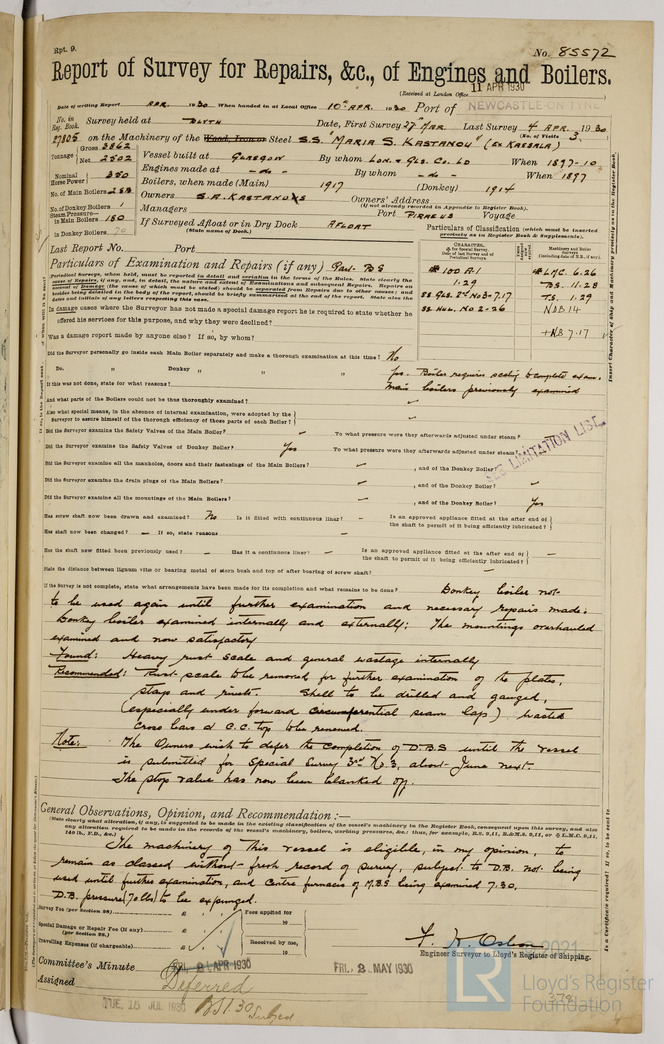 Rpt. 9.
No. 85572
Report of Survey for Repairs, &c., of Engines and Boilers.
(Received at London Office 11 APR 1930
Date of writing Report APR. 1930 When handed in at Local Office 10th APR. 1930 Port of NEWCASTLE ON TYNE
No. in Reg. Book Survey held at BLYTH Date, First Survey 27 MAR Last Survey 4 APR 1930
(No. of Visits 3)
27805 on the Machinery of the Wood, Iron or Steel S.S. "MARIA S. KASTANOU" (EX KASSALA)
Tonnage Gross 3862
Net 2502
Vessel built at GLASGOW By whom LON. & GLS. CO. LD When 1897-10
Engines made at - do - By whom - do - When 1897
Nominal Horse Power 350
Boilers, when made (Main) 1917 (Donkey) 1914
No. of Main Boilers 2SB
Owners S.A. KASTANOUS Owners' Address
(If not already recorded in Appendix to Register Book).
No. of Donkey Boilers 1
Managers Port PIRAEUS Voyage
Steam Pressure in Main Boilers 180
in Donkey Boilers 70
If Surveyed Afloat or in Dry Dock AFLOAT
(State name of Dock.)
Particulars of Classification (which must be inserted precisely as in Register Book & Supplements).
Last Report No. Port
Particulars of Examination and Repairs (if any) Part BS
Periodical Survey, when held, must be reported in detail and seriatim in the terms of the Rules. State clearly the
CHARACTER,
Machinery and Boiler Surveys
+ 100 A.1
1.29
SS GLS. 2nd No 3-7.17
SS HUL. NO 2-26
+ LMC. 6.26
B.S. 11.28
T.S. 1.29
NDB 14
+NB 7.17
In damage cases where the Surveyor has not made a special damage report he is required to state whether he
offered his services for this purpose, and why they were declined?
Was a damage report made by anyone else? If so, by whom?
Did the Surveyor personally go inside each Main Boiler separately and make a thorough examination at this time? No
Do. " Donkey " " " Yes. Boiler requires scaling to complete exam.
If this was not done, state for what reasons? Main boilers previously examined
And what parts of the Boilers could not be thus thoroughly examined?
Also what special means, in the absence of internal examination, were adopted by the
Surveyor to assure himself of the thorough efficiency of those parts of each Boiler?
Did the Surveyor examine the Safety Valves of the Main Boiler? To what pressure were they afterwards adjusted under steam?
Did the Surveyor examine the Safety Valves of Donkey Boiler? Yes To what pressure were they afterwards adjusted under steam?
SEE LIMITATION LIST.
Did the Surveyor examine all the manholes, doors and their fastenings of the Main Boilers? , and of the Donkey Boiler?
Did the Surveyor examine the drain plugs of the Main Boilers? , and of the Donkey Boiler?
Did the Surveyor examine all the mountings of the Main Boilers? , and of the Donkey Boiler? Yes
Has screw shaft now been drawn and examined? No Is it fitted with continuous liner? Is an approved appliance fitted at the after end of
the shaft to permit of it being efficiently lubricated?
Has shaft now been changed? If so, state reasons
Has the shaft now fitted been previously used? Has it a continuous liner? Is an approved appliance fitted at the after end of
the shaft to permit of it being efficiently lubricated?
State the distance between lignum vitæ or bearing metal of stern bush and top of after bearing of screw shaft?
If the Survey is not complete, state what arrangements have been made for its completion and what remains to be done? Donkey boiler not
to be used again until further examination and necessary repairs made.
Donkey boiler examined internally and externally: The mountings overhauled
examined and now satisfactory
Found: Heavy rust scale and general wastage internally
Recommended: Rust scale to be removed for further examination of the plates,
stays and rivets. Shell to be drilled and gauged,
(especially under forward circumferential seam laps) Wasted
Cross bars & C.C. top to be renewed.
Note: The Owners wish to defer the completion of D.B.S until the vessel
is submitted for Special Survey 3rd No. 3, about June next.
The stop valve has now been blanked off.
General Observations, Opinion, and Recommendation:—
(State clearly what alteration, if any, is suggested to be made in the existing classification of the vessel's machinery in the Register Book, consequent upon this survey, and also
any alteration required to be made in the records of the vessel's machinery, boilers, working pressures, &c.; thus, for example, B.S. 9,11, B.&M.S. 9,11, or +L.M.C. 9,11,
140 lb., F.D., &c.)
The machinery of this vessel is eligible, in my opinion, to
remain as classed without fresh record of survey, subject to D.B. not being
used until further examination, and Centre furnaces of M.BS being examined 7.30.
D.B. pressure (70 lbs) to be expunged.
Survey Fee (per Section 28) £ : : Fees applied for
19
Special Damage or Repair Fee (if any) (per Section 28.) £ : :
Travelling Expenses (if chargeable) £ : : Received by me,
19
Engineer Surveyor to Lloyd's Register of Shipping.
Committee's Minute APR 1930 FRI. 2 MAY 1930
Assigned Deferred
TUE. 15 JUL 1930
2021
Lloyd's Register
Foundation
LR